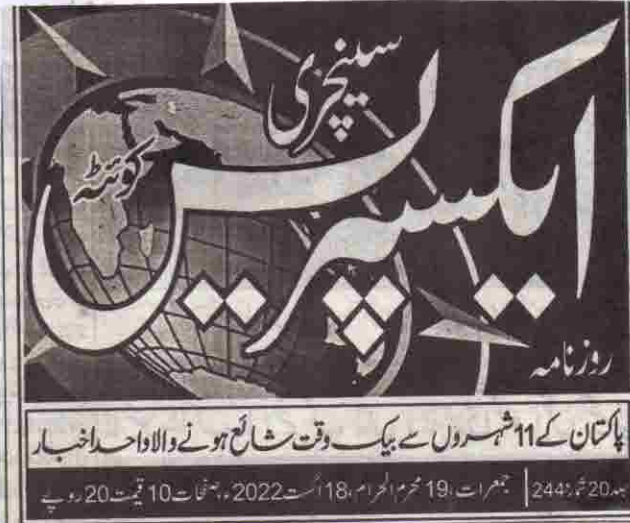 سینچری
ایکسپریس
کوئٹہ
روزنامہ
پاکستان کے 11 شہروں سے بیک وقت شائع ہونے والا واحد اخبار
جلد 20 شمارہ 244 جمعرات، 19 محرم الحرام، 18 اگست 2022ء، صفحات 10 قیمت 20 روپے